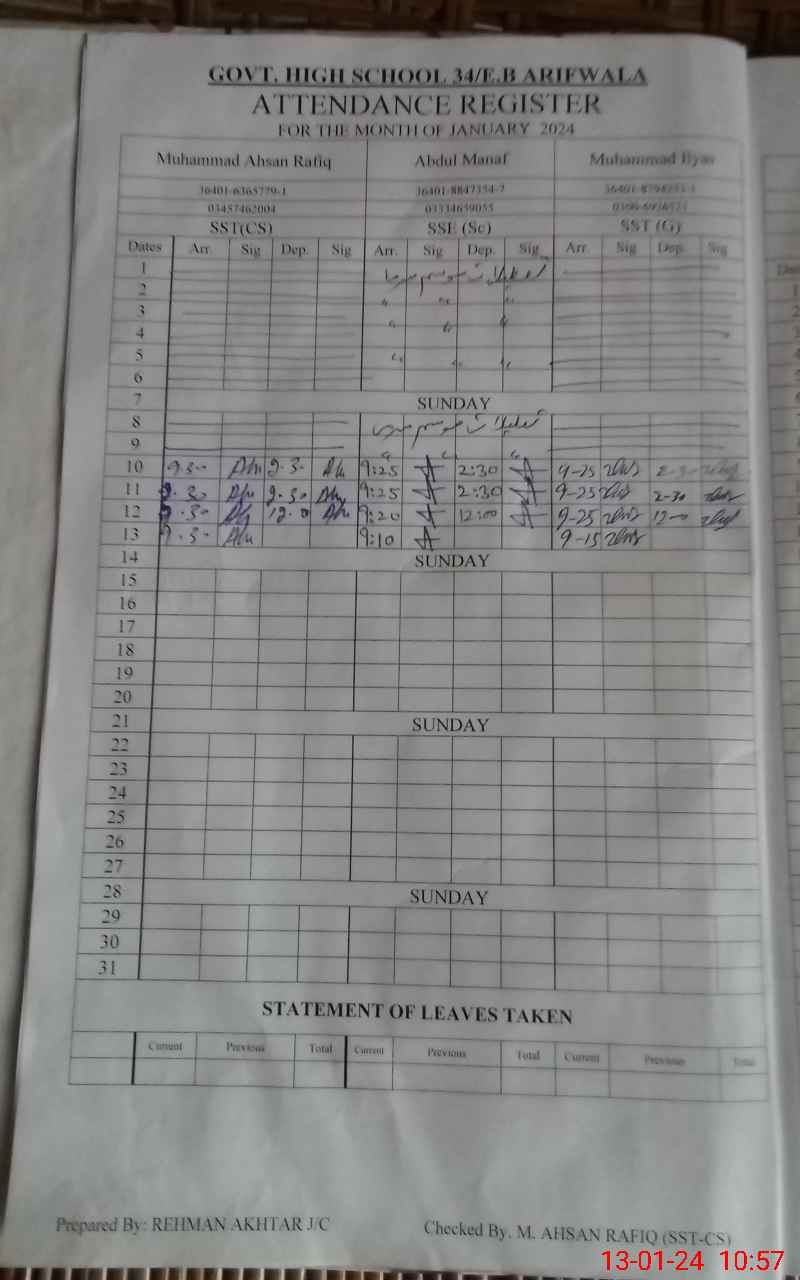 GOVT. HIGH SCHOOL 34/E.B ARIFWALA
ATTENDANCE REGISTER
FOR THE MONTH OF JANUARY 2024
Muhammad Ahsan Rafiq Abdul Manaf Muhammad Ilyas
36401-6365779-1 36401-8847354-7
03457462004 03334659055
SST(CS) SSE (Sc) SST (G)
Dates Arr. Sig Dep. Sig Arr. Sig Dep. Sig Arr. Sig Dep. Sig
1 تعطیلات موسم سرما
2
3
4
5
6
7 SUNDAY
8 تعطیلات موسم سرما
9
10 9.30 2.30 9:25 2:30 9-25
11 9.30 2.30 9:25 2:30 9-25 2-30
12 9.30 12.0 9:20 12:00 9-25 12-0
13 9.30 9:10 9-15
14 SUNDAY
15
16
17
18
19
20
21 SUNDAY
22
23
24
25
26
27
28 SUNDAY
29
30
31
STATEMENT OF LEAVES TAKEN
Current Previous Total Current Previous Total Current Previous Total
Prepared By: REHMAN AKHTAR J/C Checked By. M. AHSAN RAFIQ (SST-CS)
13-01-24 10:57